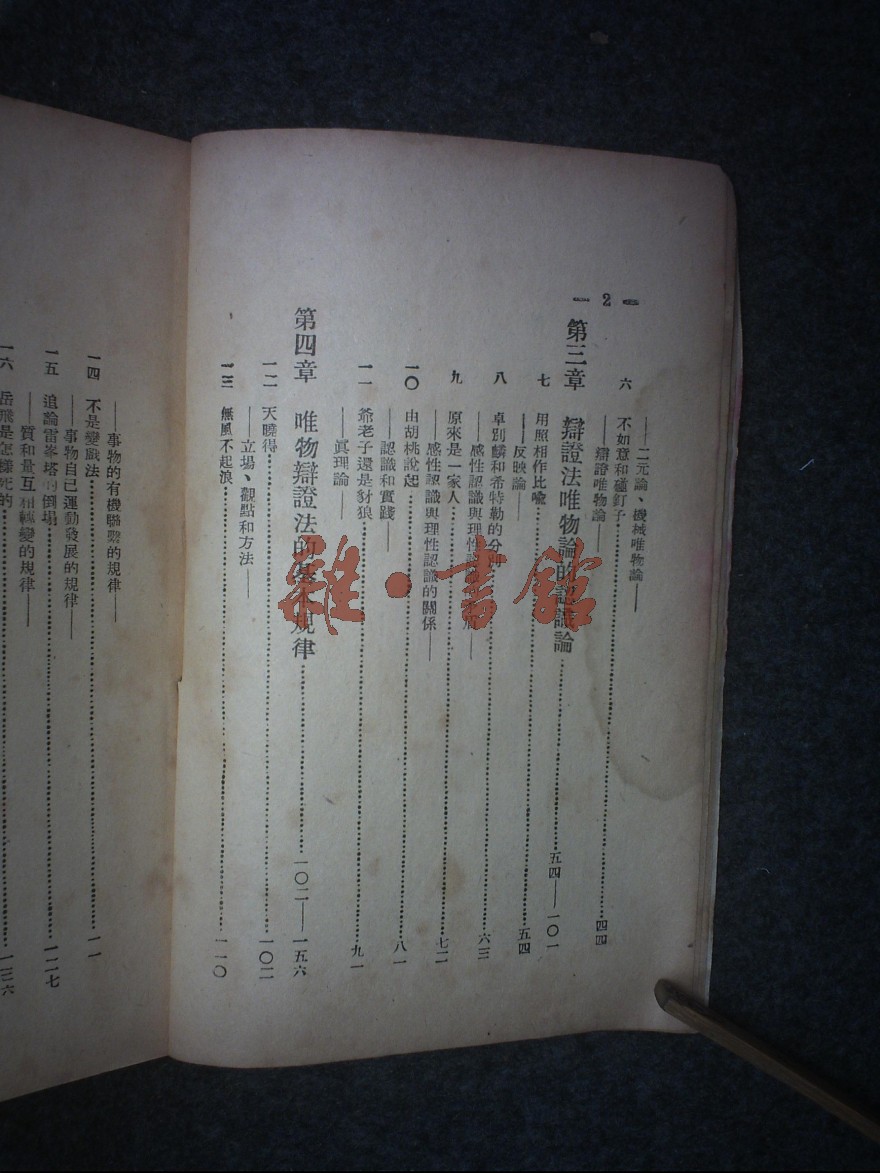 — 2 —
——二元論、機械唯物論——
六 不如意和碰釘子……四四
——辯證唯物論——
第三章 辯證法唯物論的認識論……五四——一〇一
七 用照相作比喩……五四
——反映論——
八 卓別麟和希特勒的分……六三
——感性認識與理性認識
九 原來是一家人……七二
——感性認識與理性認識的關係——
一〇 由胡桃說起……八一
——認識和實踐——
一一 爺老子還是豺狼……九一
——眞理論——
第四章 唯物辯證法的基本規律……一〇二——一五六
一二 天曉得……一〇二
——立場、觀點和方法——
一三 無風不起浪……一一〇
——事物的有機聯繫的規律——
一四 不是變戲法……一一
——事物自己運動發展的規律——
一五 追論雷峯塔的倒塲……一二七
——質和量互相轉變的規律——
一六 岳飛是怎樣死的……一三六
雜·書館